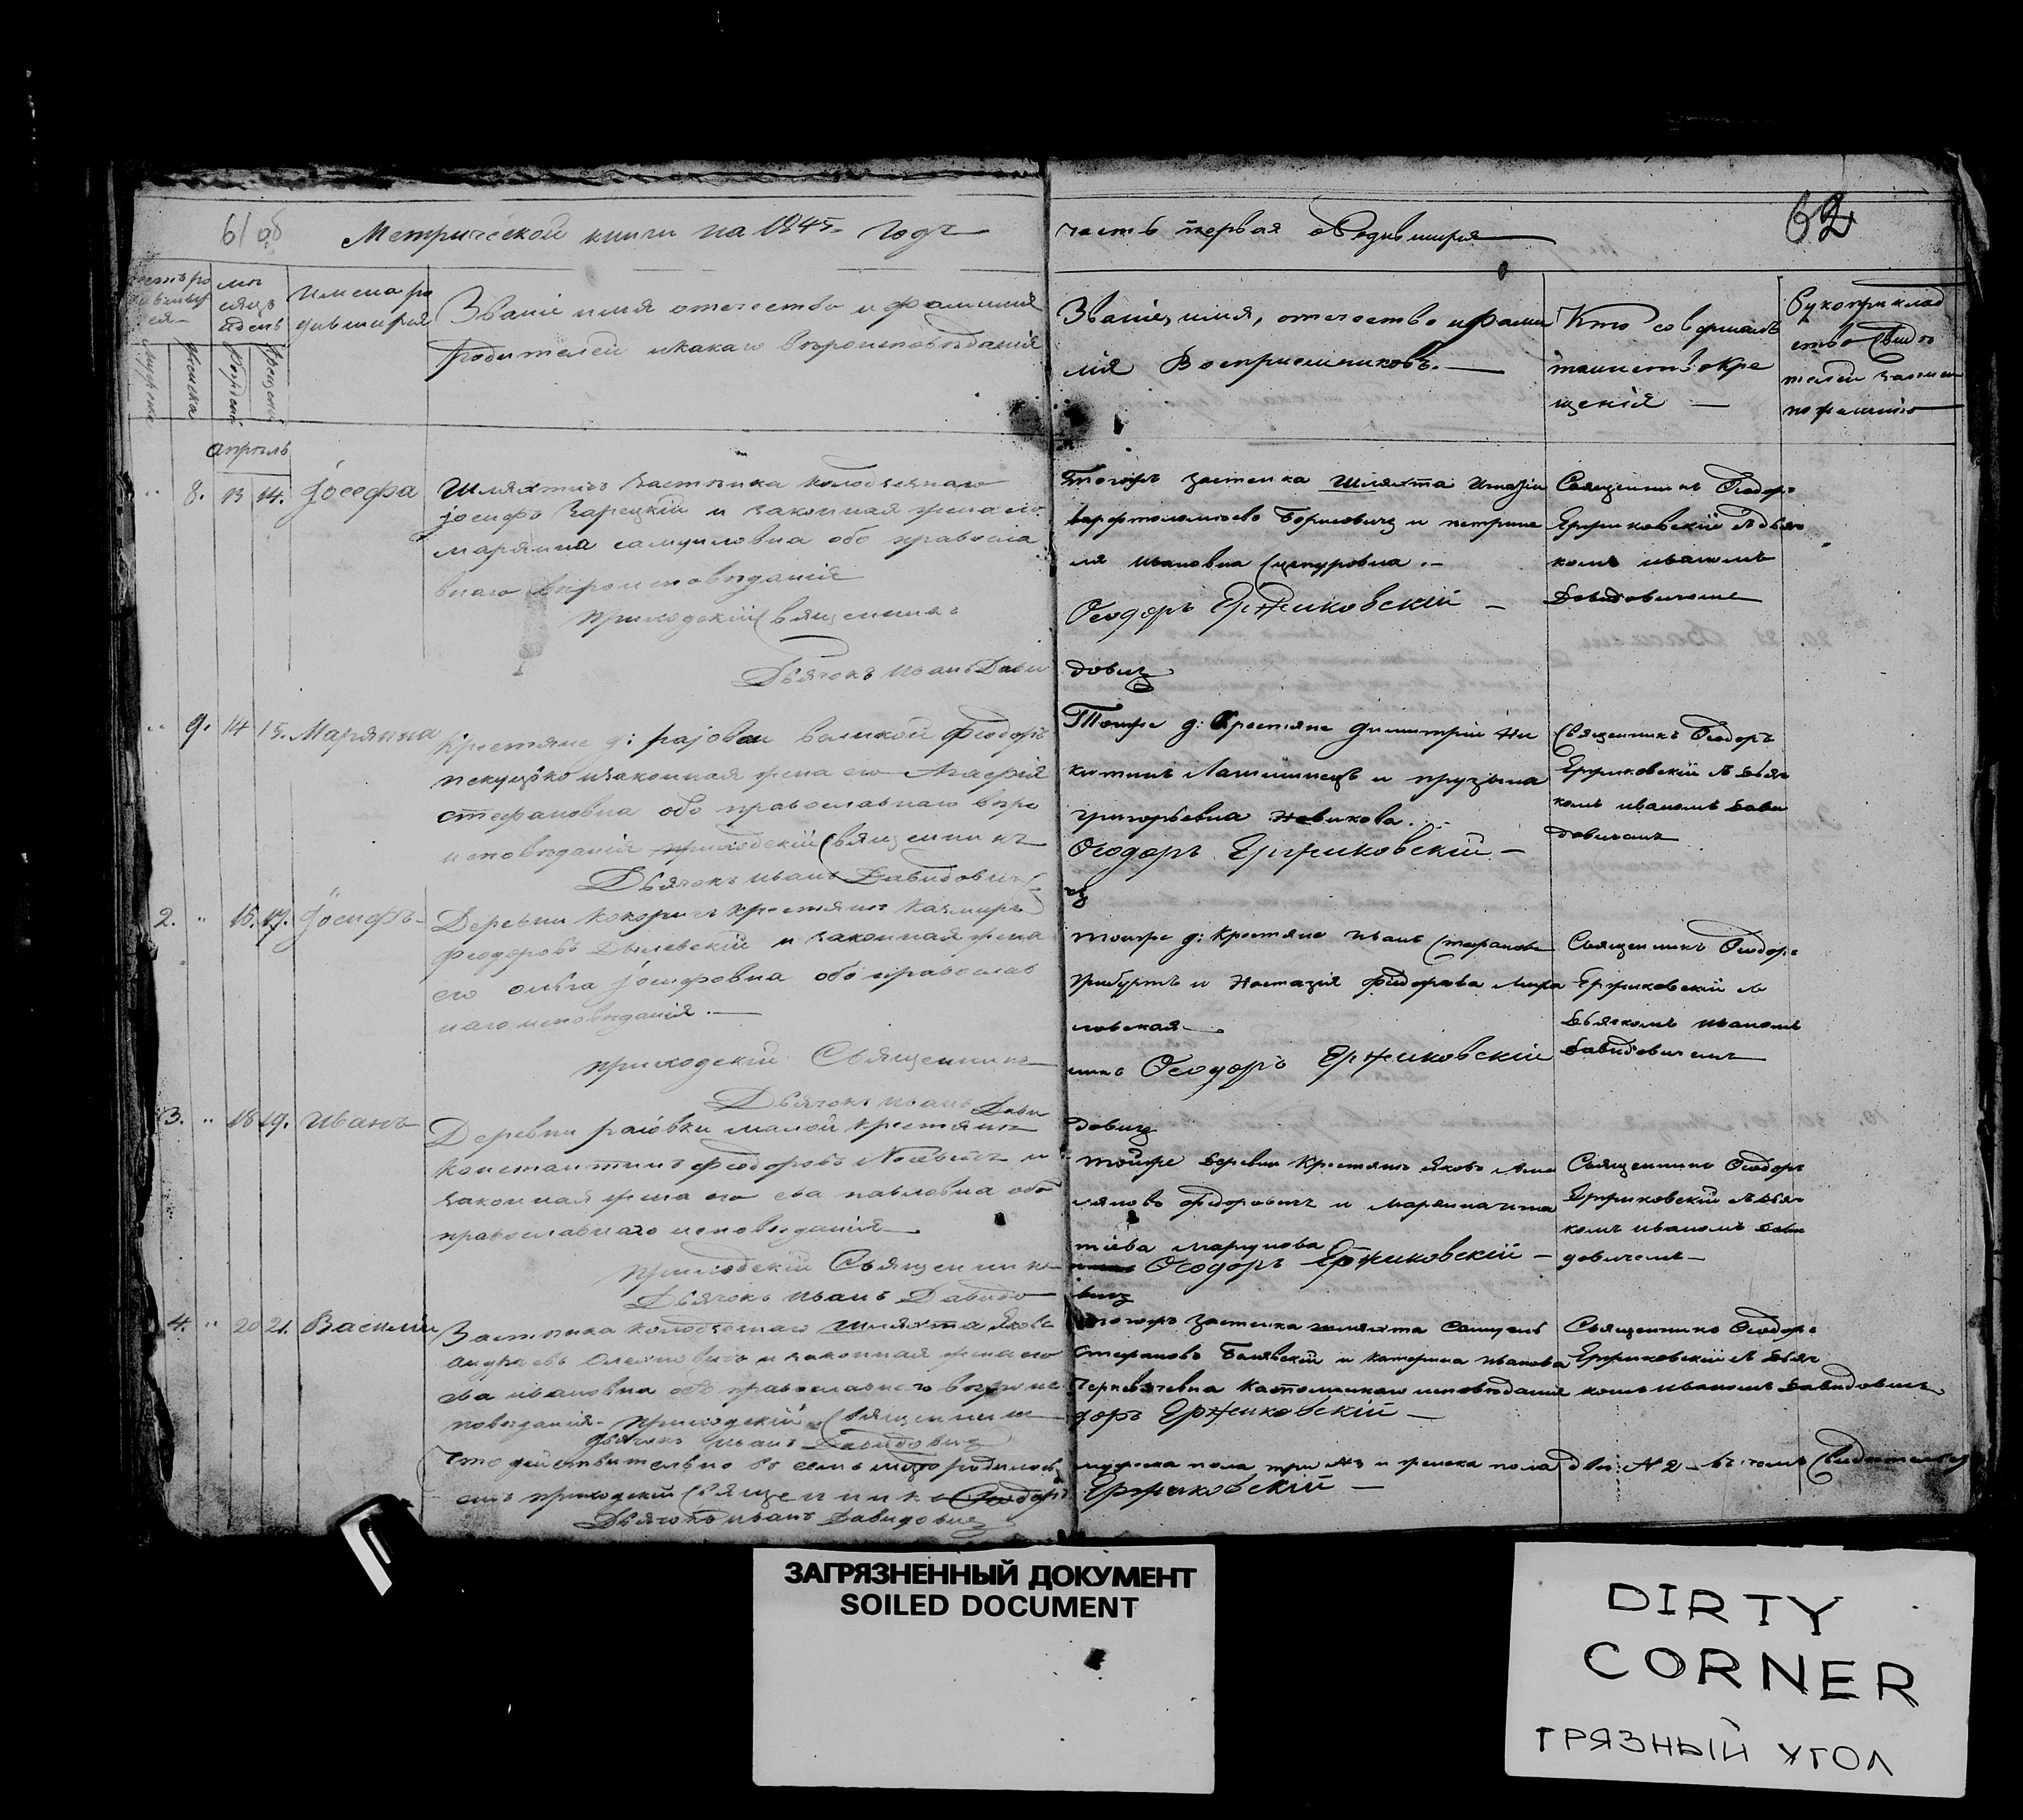 61 об
Метрической книги на 1845. годъ
часть первая о Родившихся
62
Имена ро
дившихся
мѣ
сяцъ
и день
Званіе имя отечество и фамилія
родителей и какаго вѣроисповѣданія
Званіе, имя, отечество и фами
лія Воспріемниковъ.
Кто совершалъ
таинство кре
щенія
Рукоприклад
ство свидѣ
телей записи
по желанію
апрѣль
8. 13 14. Іосефа
Шляхтичъ застѣнка колодезнаго
іосифъ Зарецкій и законная жена его
маряина самуиловна обо правосла
внаго вѣроисповѣданія
приходскій Священникъ
Дьячокъ Иванъ Дави
Тогожъ застенка шляхта
и петрине
ля Ивановна
Ѳеодоръ Ержиковскій
довичъ
Священникъ Ѳеодоръ
Ержиковскій с дьяч
комъ иваномъ
Давидовичомъ
9. 14 15. Марянна
Крестяне д: раіовки великой Феодоръ
и законная жена его Агафія
стефановна обо православнаго вѣро
исповѣданія приходскій Священникъ
Дьячокъ иванъ Давидови
Тойже д: Крестяне Димитрій Ни
китинъ и прузына
григорьевна Новикова.
Ѳеодоръ Ержиковскій
чъ
Священникъ Ѳеодоръ
Ержиковскій с дьяч
комъ иваномъ Дави
довичомъ
2. 15. 17. Іосифъ
Деревни Кокоричъ крестянинъ Казимиръ
феодоровъ и законная жена
его ольга іосифовна обо православ
наго исповѣданія.
приходскій Священни
Дьячокъ иванъ Дави
тойже д: Крестяне иванъ Стефановъ
и Настазія Фіодорова
ловская
никъ Ѳеодоръ Ержиковскій
довичъ
Священникъ Ѳеодоръ
Ержиковскій с
Дьячкомъ иваномъ
Давидовичемъ
3. 18 19. Иванъ
Деревни раіовки малой крестянинъ
константинъ феодоровъ и
законная жена его ева павловна обо
православнаго исповѣданія
приходскій Священник
Дьячокъ иванъ Давидо
тойже деревни Крестянъ Яковъ
феодоровичъ и маряина игна
тіева
Ѳеодоръ Ержиковскій
вичъ
Священникъ Ѳеодоръ
Ержиковскій с дьяч
комъ иваномъ Дави
довичемъ
4. 20 21. Василій
Застѣнка колодезнаго шляхта Яковъ
андреевъ и законная жена его
ева ивановна обо православнаго вѣроис
повѣданія приходскій Священник
Дьячокъ иванъ Давидовичъ
тогожъ застенка шляхта Самуелъ
Стефановъ и катерина иванова
католическаго исповѣданія
доръ Ержиковскій
Священникъ Ѳеодоръ
Ержиковскій с дьяч
комъ иваномъ Давидовичъ
Что дѣйствительно въ семъ родилось
мужеска пола три №3 и женска пола двѣ: №2 въ томъ свидѣтельству
емъ приходскій Священникъ Ѳеодоръ
Ержиковскій
Дьячокъ иванъ Давидовичъ
ЗАГРЯЗНЕННЫЙ ДОКУМЕНТ
SOILED DOCUMENT
DIRTY
CORNER
ГРЯЗНЫЙ УГОЛ